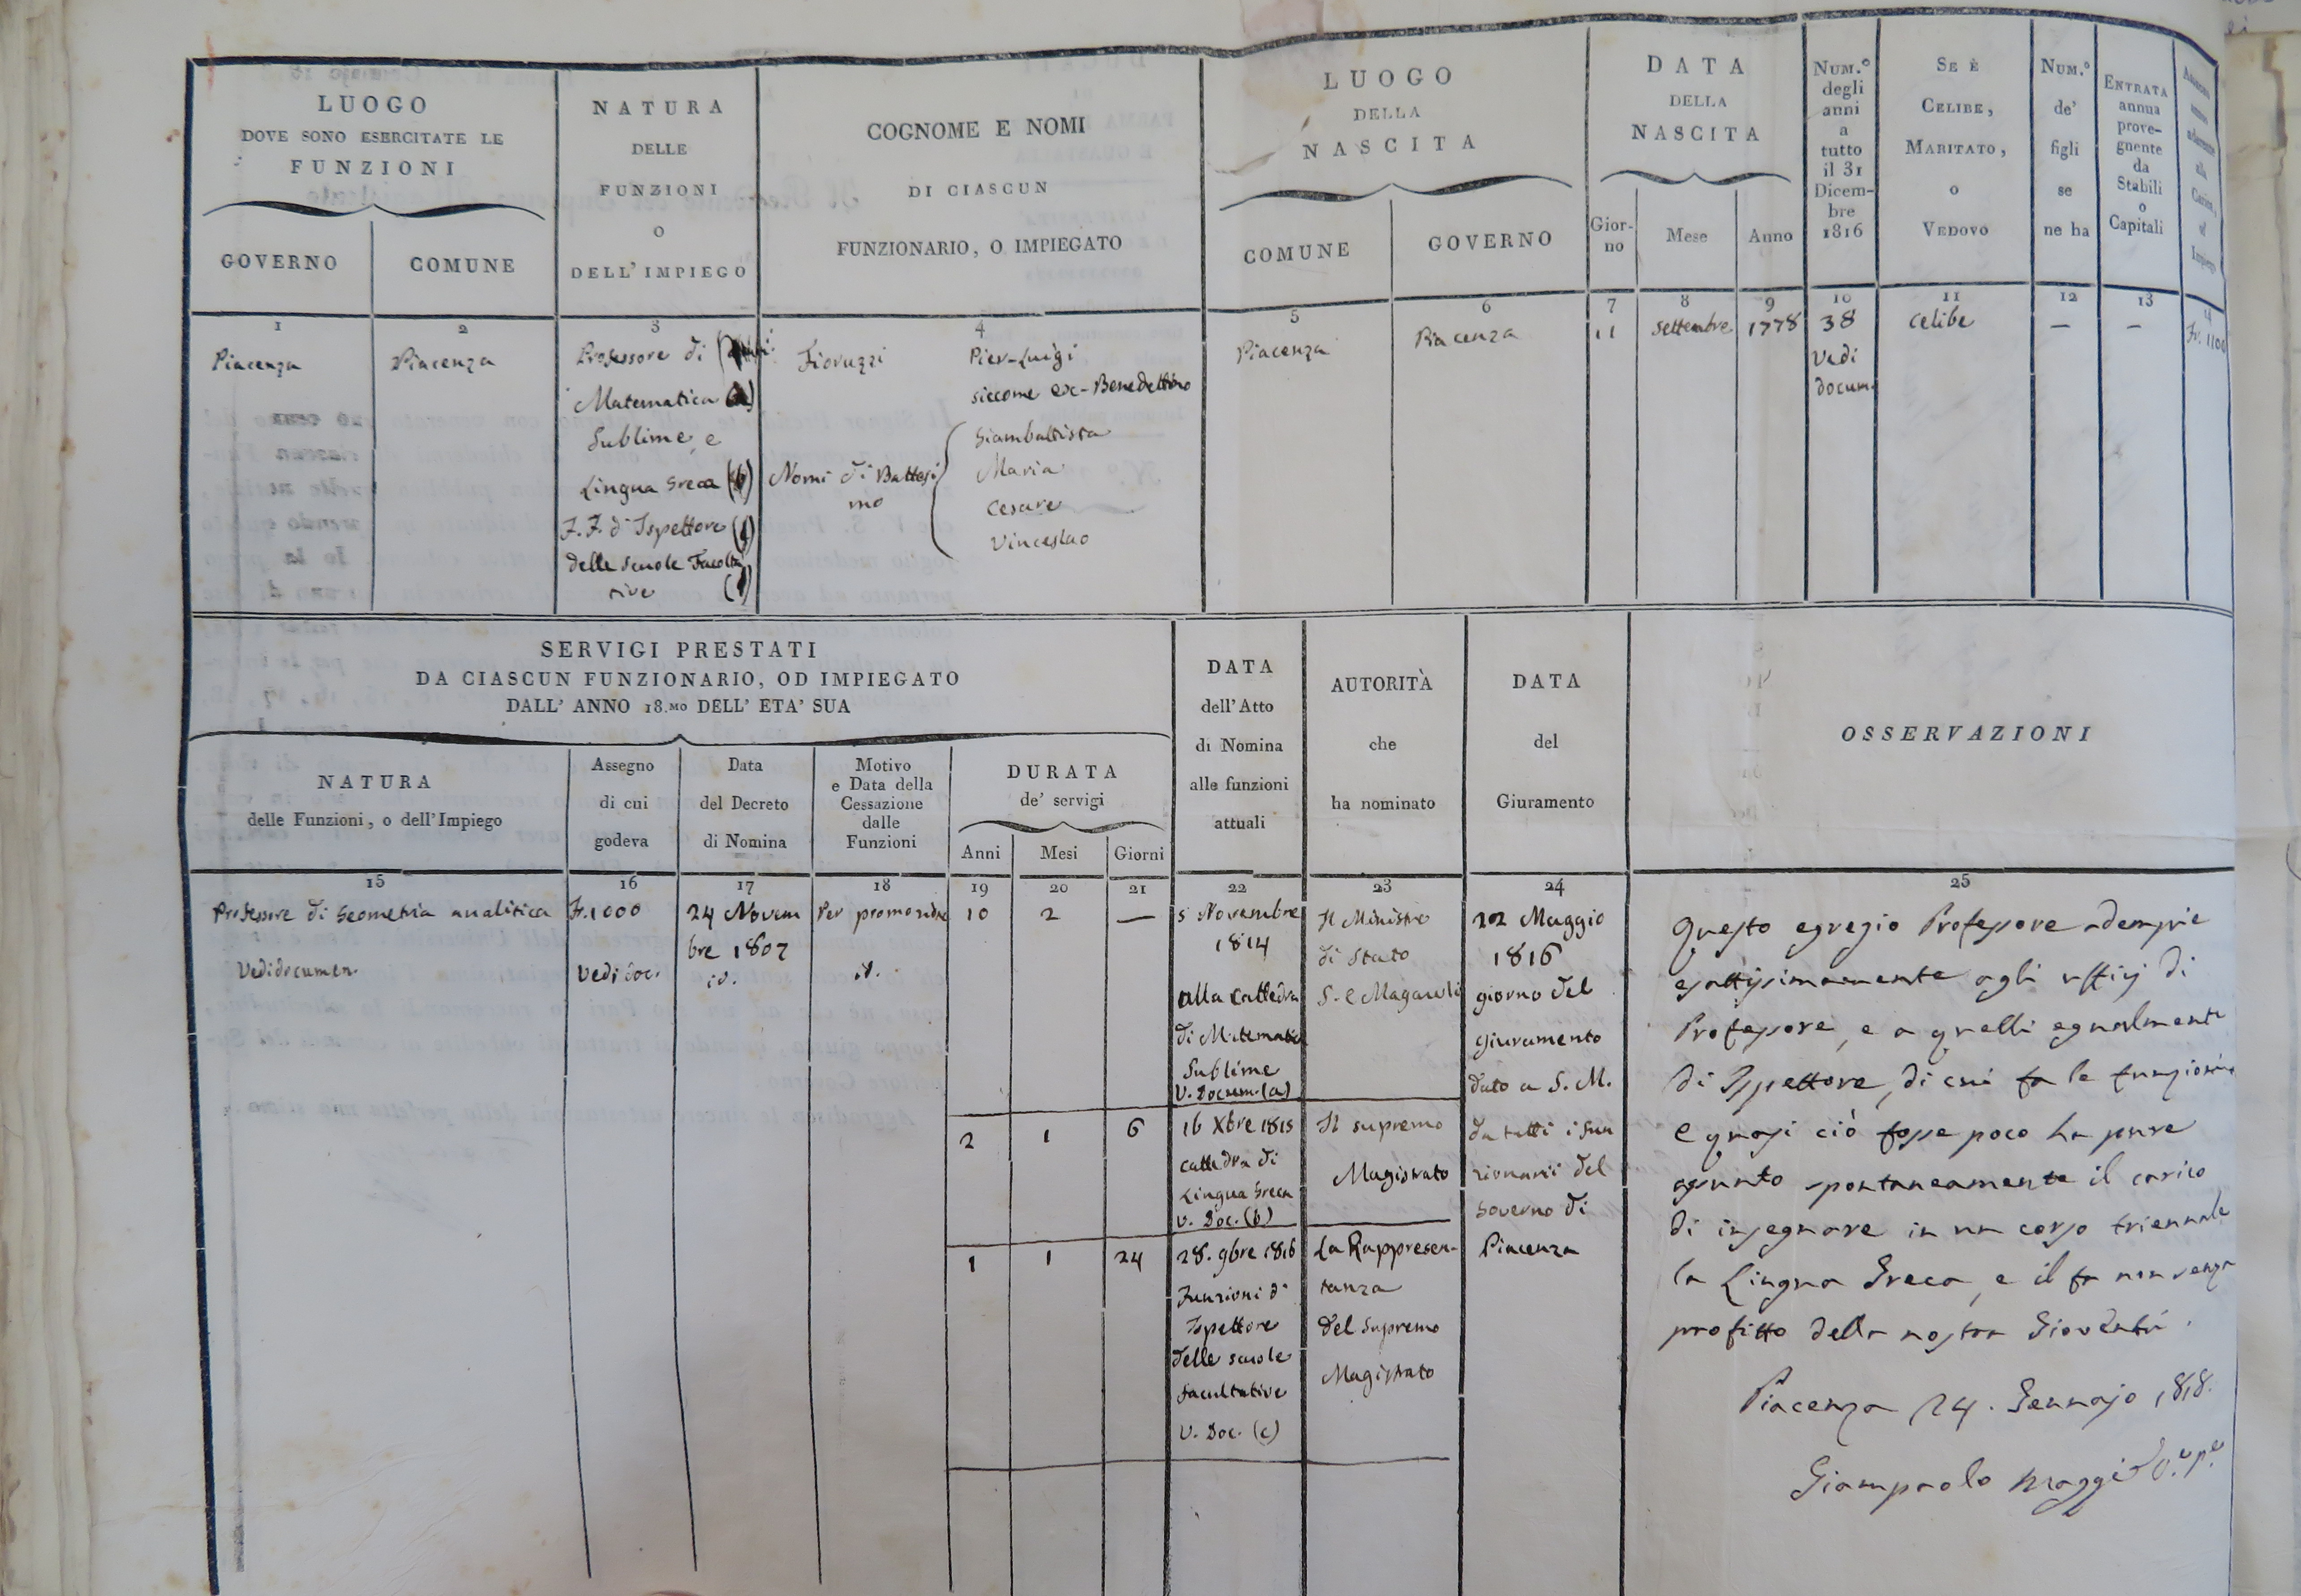 LUOGO
DOVE SONO ESERCITATE LE
FUNZIONI
GOVERNO
COMUNE
NATURA
DELLE
FUNZIONI
O
DELL' IMPIEGO
COGNOME E NOMI
DI CIASCUN
FUNZIONARIO, O IMPIEGATO
LUOGO
DELLA
NASCITA
COMUNE
GOVERNO
DATA
DELLA
NASCITA
Gior-
no
Mese
Anno
NUM.º
degli
anni
a
tutto
il 31
Dicem-
bre
1816
SE È
CELIBE,
MARITATO,
O
VEDOVO
NUM.º
de'
figli
se
ne ha
ENTRATA
annua
prove-
gnente
da
Stabili
o
Capitali
1
2
3
4
5
6
7
8
9
10
11
12
13
14
Piacenza
Piacenza
Professore di
Matematica
Sublime, e
Lingua Greca (b)
F.F. d'Ispettore
delle Scuole Facolta
tive
Fioruzzi
Pier-Luigi
siccome ex-Benedettino
Nomi di Battesi
mo
Giambattista
Maria
Cesare
Vinceslao
Piacenza
Piacenza
11
Settembre
1778
38
Vedi
docum.
Celibe
—
—
Fr. 1100
SERVIGI PRESTATI
DA CIASCUN FUNZIONARIO, OD IMPIEGATO
DALL' ANNO 18.MO DELL' ETA' SUA
NATURA
delle Funzioni, o dell'Impiego
Assegno
di cui
godeva
Data
del Decreto
di Nomina
Motivo
e Data della
Cessazione
dalle
Funzioni
DURATA
de' servigi
Anni
Mesi
Giorni
DATA
dell'Atto
di Nomina
alle funzioni
attuali
AUTORITÀ
che
ha nominato
DATA
del
Giuramento
OSSERVAZIONI
15
16
17
18
19
20
21
22
23
24
25
Professore di Geometria analitica
Vedi documen.
Fr. 1000
Vedi doc.
24 Novem
bre 1807
id.
Per promozione
id.
10
2
—
5 Novembre
1814
alla Cattedra
di Matematica
Sublime
V. Docum. (a)
Il Ministro
di Stato
S. E Magawli
22 Maggio
1816
giorno del
giuramento
dato a S. M.
da tutti i fun
zionarii del
Governo di
Piacenza
2
1
6
16 Xbre 1815
cattedra di
Lingua Greca
V. Doc. (b)
Il supremo
Magistrato
1
1
24
28. 9bre 1816
Funzioni d'
Ispettore
delle scuole
facultative
V. Doc. (c)
La Rappresen-
tanza
del Supremo
Magistrato
Questo egregio Professore adempie
esattissimamente agli uffizj di
Professore, e a quelli egualmente
di Ispettore, di cui fa le funzioni,
e quasi ciò fosse poco ha pure
assunto spontaneamente il carico
di insegnare in un corso triennale
la Lingua Greca, e il fa non senza
profitto della nostra Gioventù.
Piacenza 24. Gennajo 1818.
Giampaolo Maggi